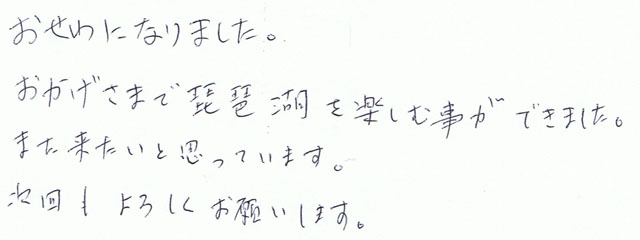 おせわになりました。
おかげさまで琵琶湖を楽しむ事ができました。
また来たいと思っています。
次回もよろしくお願いします。